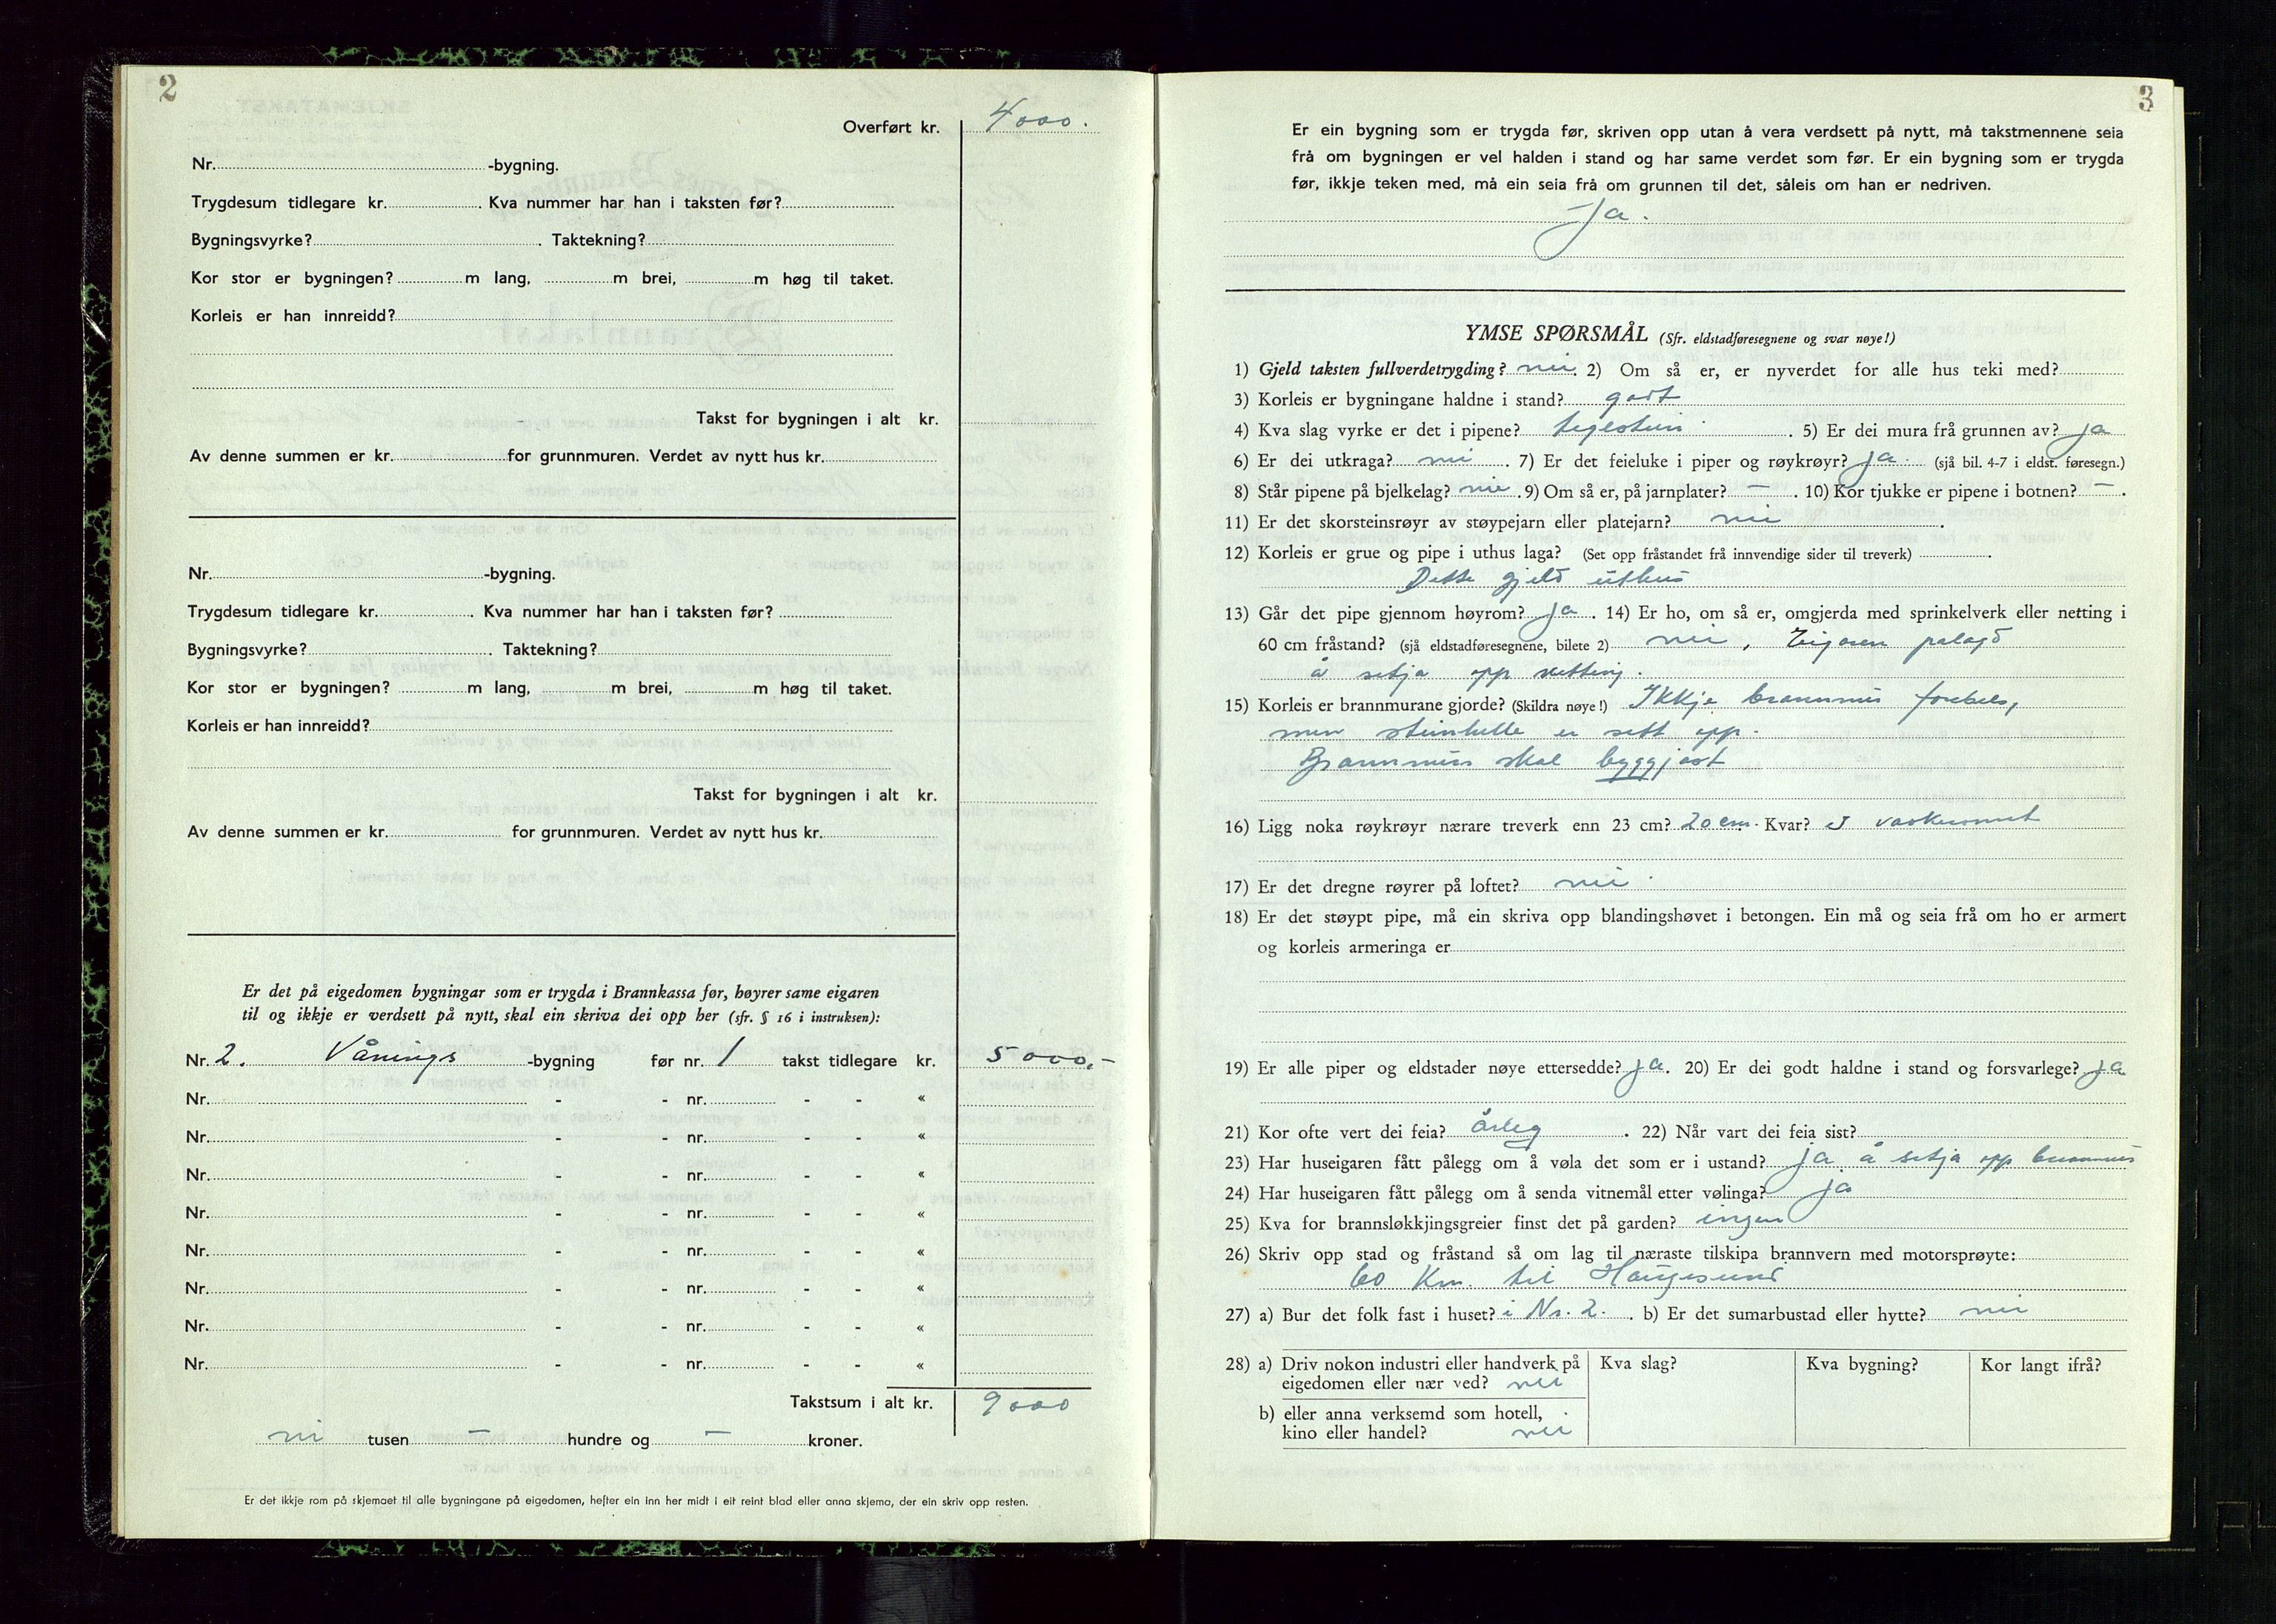 2
Overført kr. 4000.
Nr. -bygning.
Trygdesum tidlegare kr. . Kva nummer har han i taksten før?
Bygningsvyrke? . Taktekning?
Kor stor er bygningen? m lang, m brei, m høg til taket.
Korleis er han innreidd?
Takst for bygningen i alt kr.
Av denne summen er kr. for grunnmuren. Verdet av nytt hus kr.
Nr. -bygning.
Trygdesum tidlegare kr. . Kva nummer har han i taksten før?
Bygningsvyrke? . Taktekning?
Kor stor er bygningen? m lang, m brei, m høg til taket.
Korleis er han innreidd?
Takst for bygningen i alt kr.
Av denne summen er kr. for grunnmuren. Verdet av nytt hus kr.
Er det på eigedomen bygningar som er trygda i Brannkassa før, høyrer same eigaren
til og ikkje er verdsett på nytt, skal ein skriva dei opp her (sfr. § 16 i instruksen):
Nr. 2. Vånings -bygning før nr. 1 takst tidlegare kr. 5000,-
Nr. - - nr. - - «
Nr. - - nr. - - «
Nr. - - nr. - - «
Nr. - - nr. - - «
Nr. - - nr. - - «
Nr. - - nr. - - «
Nr. - - nr. - - «
Nr. - - nr. - - «
Takstsum i alt kr. 9000
ni tusen — hundre og — kroner.
Er det ikkje rom på skjemaet til alle bygningane på eigedomen, hefter ein inn her midt i eit reint blad eller anna skjema, der ein skriv opp resten.
3
Er ein bygning som er trygda før, skriven opp utan å vera verdsett på nytt, må takstmennene seia
frå om bygningen er vel halden i stand og har same verdet som før. Er ein bygning som er trygda
før, ikkje teken med, må ein seia frå om grunnen til det, såleis om han er nedriven.
Ja.
YMSE SPØRSMÅL (Sfr. eldstadføresegnene og svar nøye!)
1) Gjeld taksten fullverdetrygding? nei. 2) Om så er, er nyverdet for alle hus teki med?
3) Korleis er bygningane haldne i stand? godt
4) Kva slag vyrke er det i pipene? teglstein . 5) Er dei mura frå grunnen av? ja
6) Er dei utkraga? nei . 7) Er det feieluke i piper og røykrøyr? ja. (sjå bil. 4-7 i eldst. føresegn.)
8) Står pipene på bjelkelag? nei . 9) Om så er, på jarnplater? — . 10) Kor tjukke er pipene i botnen? — .
11) Er det skorsteinsrøyr av støypejarn eller platejarn? nei .
12) Korleis er grue og pipe i uthus laga? (Set opp fråstandet frå innvendige sider til treverk) .
Dette gjeld uthus
13) Går det pipe gjennom høyrom? ja . 14) Er ho, om så er, omgjerda med sprinkelverk eller netting i
60 cm fråstand? (sjå eldstadføresegnene, bilete 2) nei, Eigaren pålagd
å setja opp netting.
15) Korleis er brannmurane gjorde? (Skildra nøye!) Ikkje brannmur forebels,
men steinhelle er sett opp.
Brannmur skal byggjast
16) Ligg noka røykrøyr nærare treverk enn 23 cm? 20 cm. Kvar? I vaskerommet
17) Er det dregne røyrer på loftet? nei
18) Er det støypt pipe, må ein skriva opp blandingshøvet i betongen. Ein må og seia frå om ho er armert
og korleis armeringa er
19) Er alle piper og eldstader nøye ettersedde? ja. 20) Er dei godt haldne i stand og forsvarlege? ja
21) Kor ofte vert dei feia? årleg . 22) Når vart dei feia sist?
23) Har huseigaren fått pålegg om å vøla det som er i ustand? ja, å setja opp brannmur
24) Har huseigaren fått pålegg om å senda vitnemål etter vølinga? ja
25) Kva for brannsløkkjingsgreier finst det på garden? ingen
26) Skriv opp stad og fråstand så om lag til næraste tilskipa brannvern med motorsprøyte:
60 Km. til Haugesund
27) a) Bur det folk fast i huset? i Nr. 2. . b) Er det sumarbustad eller hytte? nei
28) a) Driv nokon industri eller handverk på Kva slag? Kva bygning? Kor langt ifrå?
eigedomen eller nær ved? nei
b) eller anna verksemd som hotell,
kino eller handel? nei